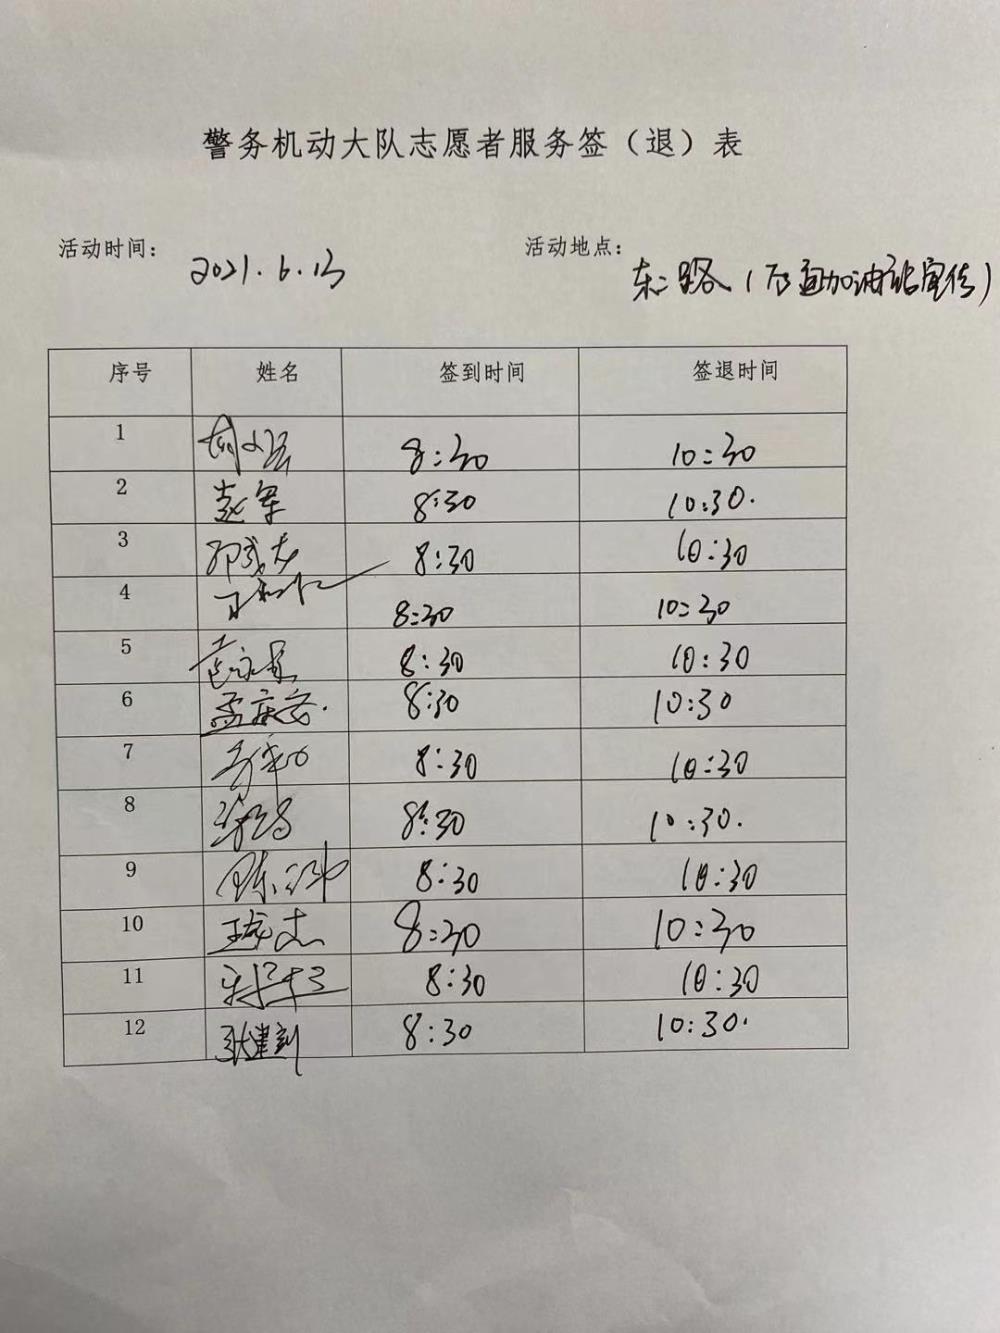 警务机动大队志愿者服务签（退）表
活动时间： 2021.6.13 活动地点： 东二路（加油站宣传）
序号 姓名 签到时间 签退时间
1 8:30 10:30
2 赵军 8:30 10:30.
3 邵成志 8:30 10:30
4 8:30 10:30
5 8:30 10:30
6 8:30 10:30
7 8:30 10:30
8 8:30 10:30.
9 8:30 10:30
10 8:30 10:30
11 8:30 10:30
12 张建刚 8:30 10:30.